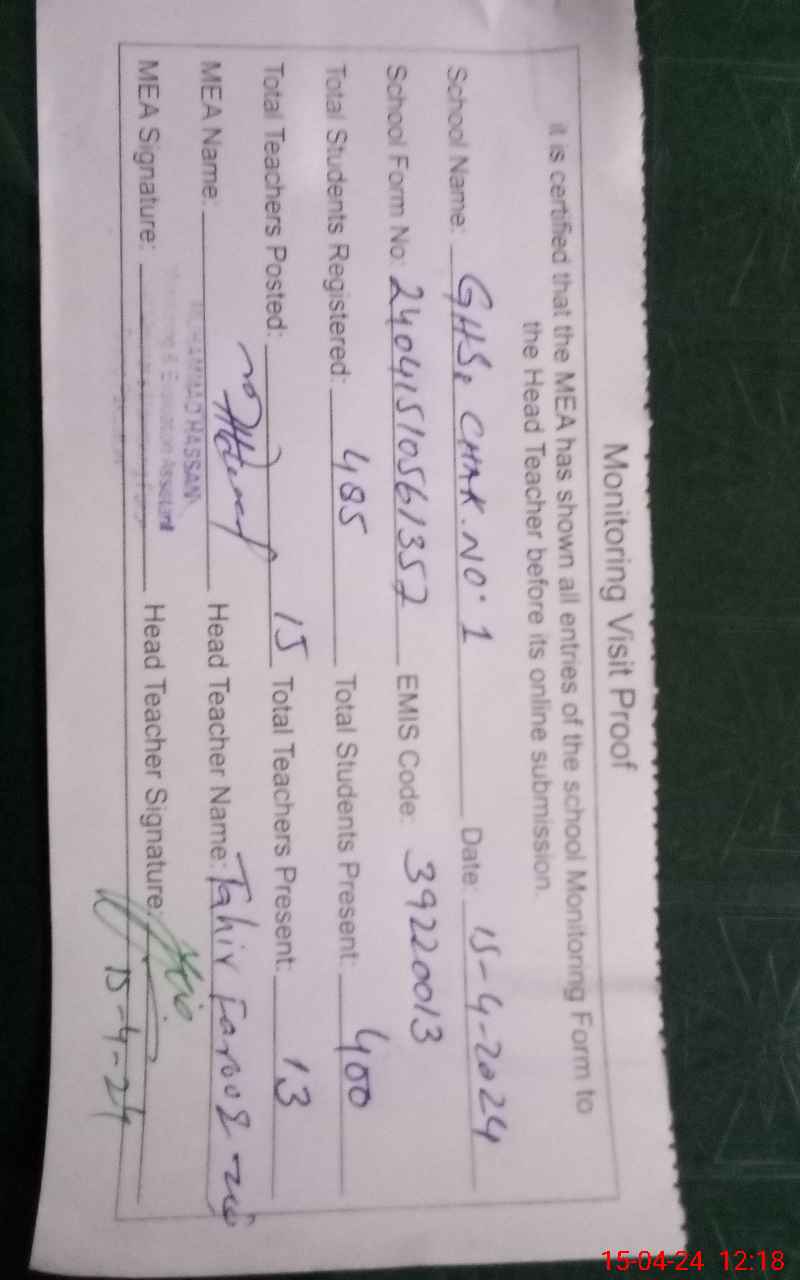 Monitoring Visit Proof
it is certified that the MEA has shown all entries of the school Monitoring Form to
the Head Teacher before its online submission.
School Name: GHS, CHAK.NO.1 Date: 15-4-2024
School Form No: 24041510561357 EMIS Code: 39220013
Total Students Registered: 485 Total Students Present: 400
Total Teachers Posted: 15 Total Teachers Present: 13
MEA Name: Head Teacher Name: Tahir Farooq
MUHAMMAD HASSAN
Monitoring & Evaluation Assistant
MEA Signature: Head Teacher Signature:
15-4-24
15-04-24 12:18